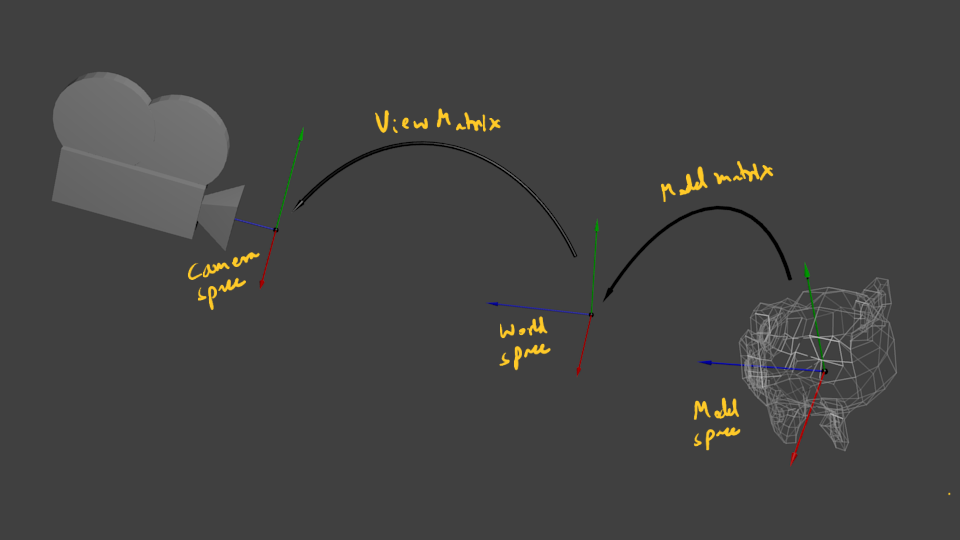 View Matrix
Model matrix
Camera
space
World
space
Model
space